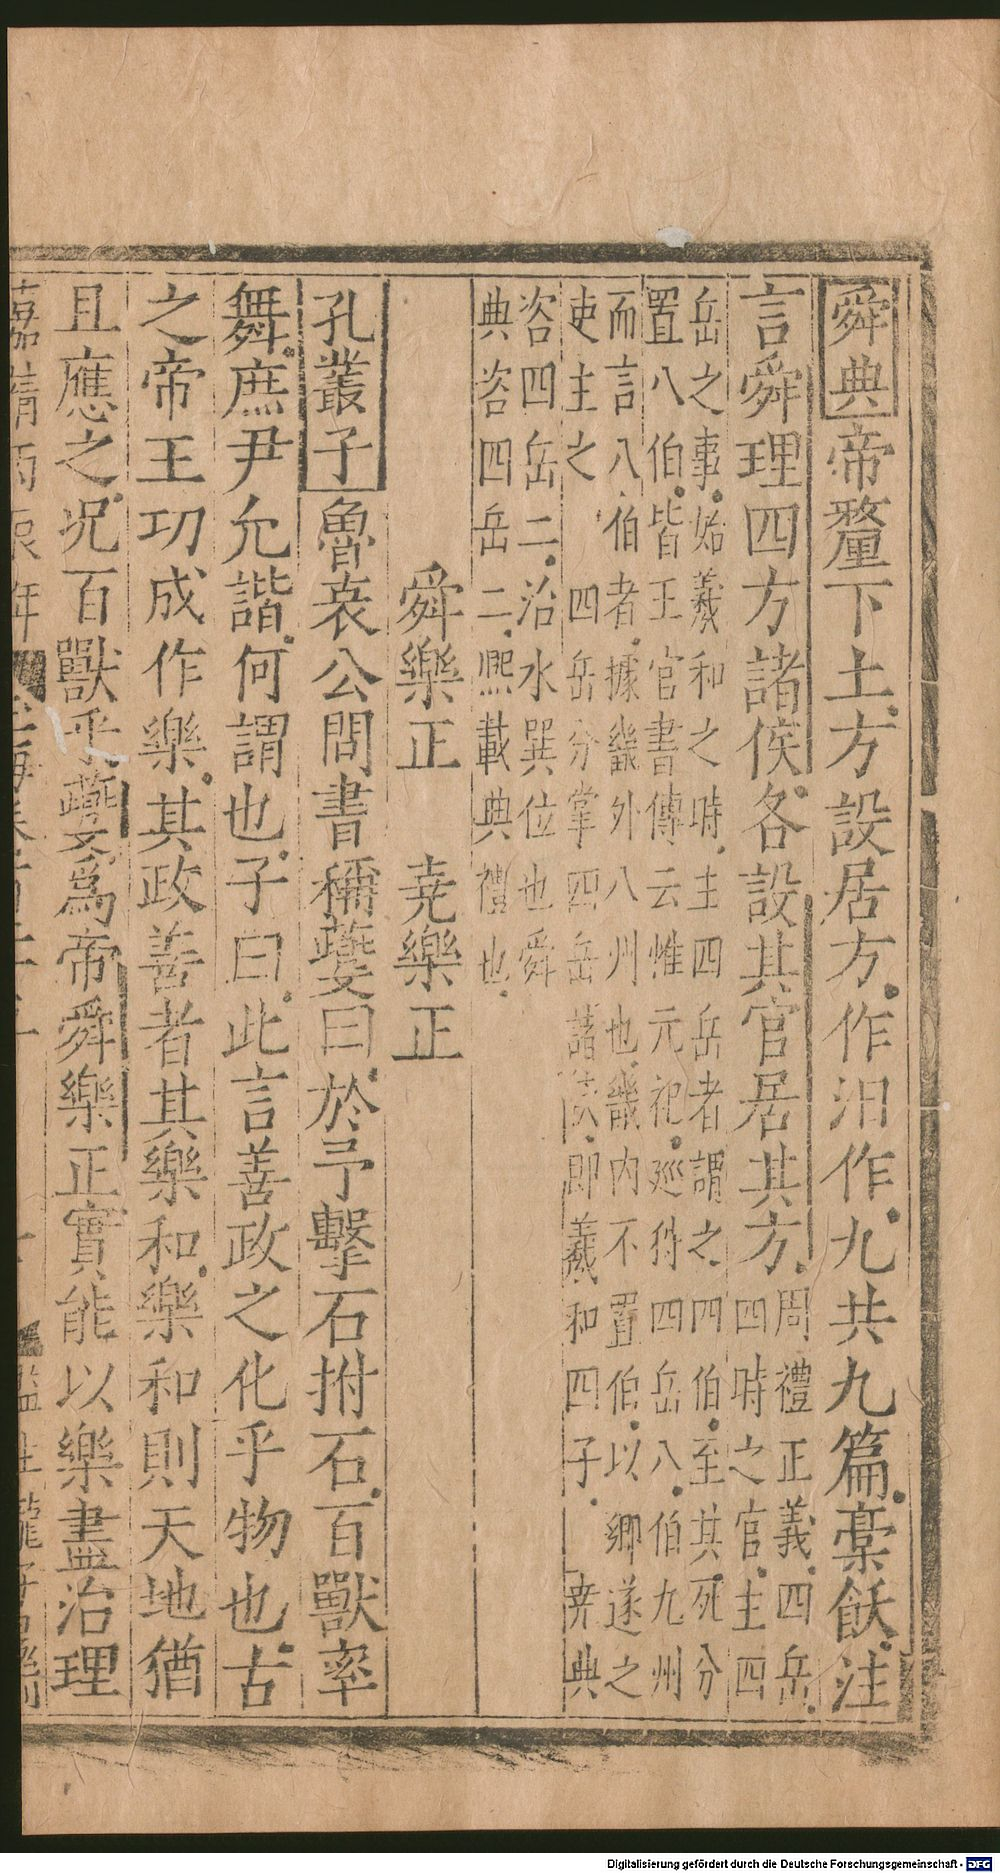 舜典帝釐下土方設居方作汩作九共九篇槀飫注
言舜理四方諸侯各設其官居其方周禮正義四岳
四時之官主四
岳之事始羲和之時主四岳者謂之四伯至其死分
置八伯皆王官書傳云惟元祀廵狩四岳八伯九州
而言八伯者據畿外八州也畿内不置伯以鄉遂之
吏主之 四岳分掌四岳諸侯即羲和四子 堯典
咨四岳二治水巽位也舜
典咨四岳二熈載典禮也
舜樂正 堯樂正
孔叢子魯哀公問書稱夔曰於予擊石拊石百獸率
舞庶尹允諧何謂也子曰此言善政之化乎物也古
之帝王功成作樂其政善者其樂和樂和則天地猶
且應之况百獸乎夔爲帝舜樂正實能以樂盡治理
嘉靖丙辰年
Digitalisierung gefördert durch die Deutsche Forschungsgemeinschaft - DFG